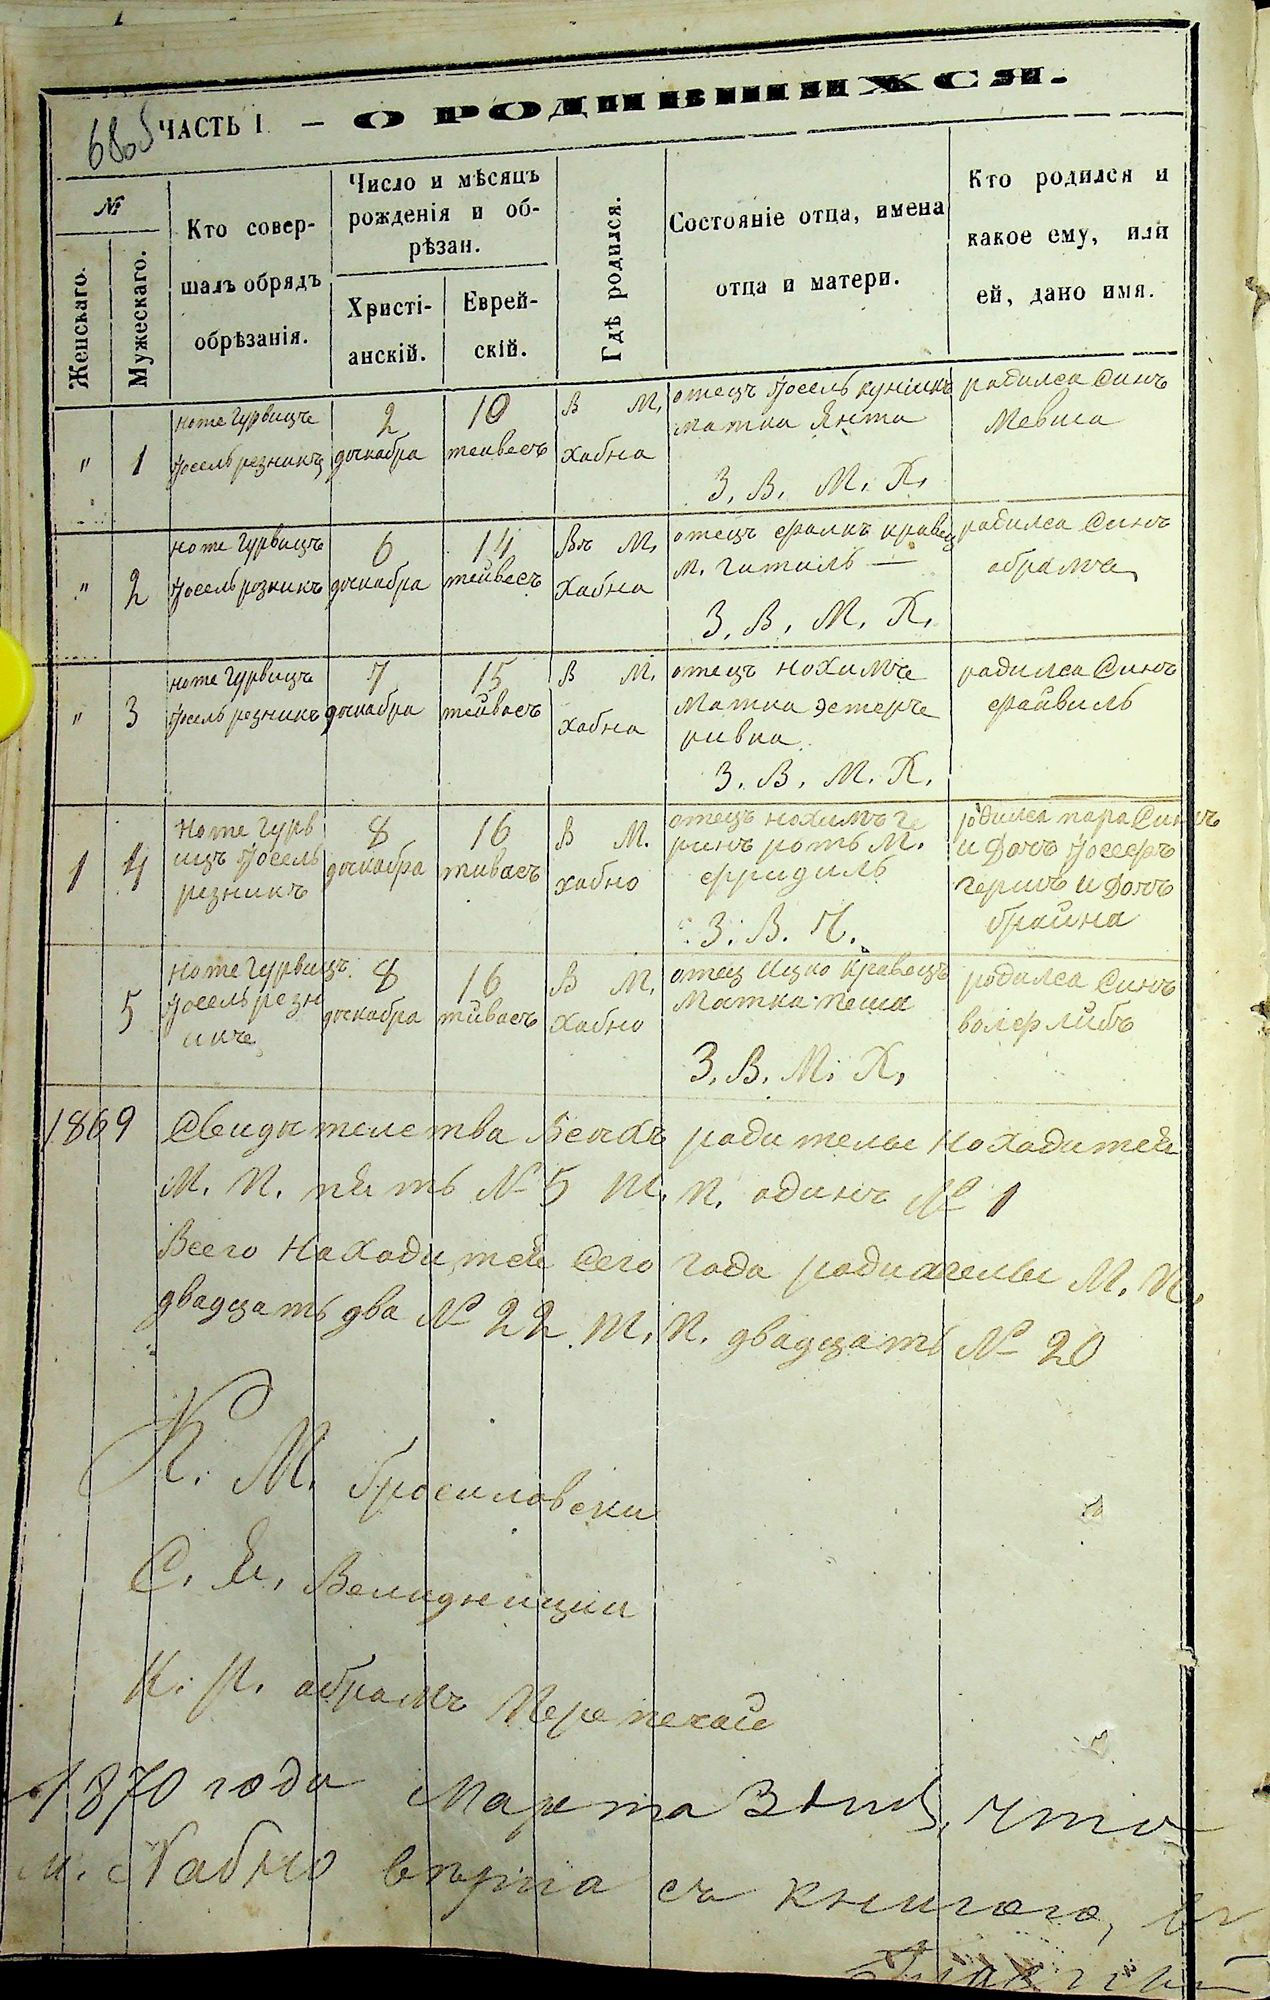 ЧАСТЬ I. — О РОДИВШИХСЯ.
№
Женскаго.
Мужескаго.
Кто совер-
шалъ обрядъ
обрѣзанія.
Число и мѣсяцъ
рожденія и об-
рѣзан.
Христі-
анскій.
Еврей-
скій.
Гдѣ родился.
Состояніе отца, имена
отца и матери.
Кто родился и
какое ему, или
ей, дано имя.
" 1
ноте Гурвицъ
Іосель резникъ
2
декабра
10
тейвесъ
В М.
Хабна
отецъ Іосель
матка Янта
З. В. М. Х.
радилса Синъ
" 2
ноте Гурвицъ
Іосель резникъ
6
декабра
14
тейвесъ
Въ М.
Хабна
отецъ фалкъ кравец
М. гитиль —
З. В. М. Х.
радилса Синъ
абрамъ
" 3
ноте Гурвицъ
Іосель резникъ
7
декабра
15
тейвесъ
В М.
Хабна
отецъ нохимъ
Матка Эстеръ
ривка
З. В. М. Х.
радилса Синъ
файвиль
1 4
Ноте Гурв
ицъ Іосель
резникъ
8
декабра
16
тивесъ
В М.
хабно
отецъ нохимъ ге
М.
фридиль
З. В. Х.
родилса пара Синъ
и Дочъ Іосефъ
гершъ и Дочъ
брайна
5
Ноте Гурвицъ
Іосель резн
икъ
8
декабра
16
тивесъ
В М.
Хабно
отец Ицко Кравецъ
Матка песа
З. В. М. Х.
родилса Синъ
волф лейбъ
1869 Свидетелства Всехъ
М. П. пять № 5 Ж. П. одинъ № 1
Всего Находитей Сего года М. П.
двадцать два № 22 Ж. П. двадцать № 20
К. М. брасиловски
С. Я. Веледницки
К. Р. абрамъ Перепечай
1870 года Марта 3 дня, что
м. Хабно вѣрна съ книгою,